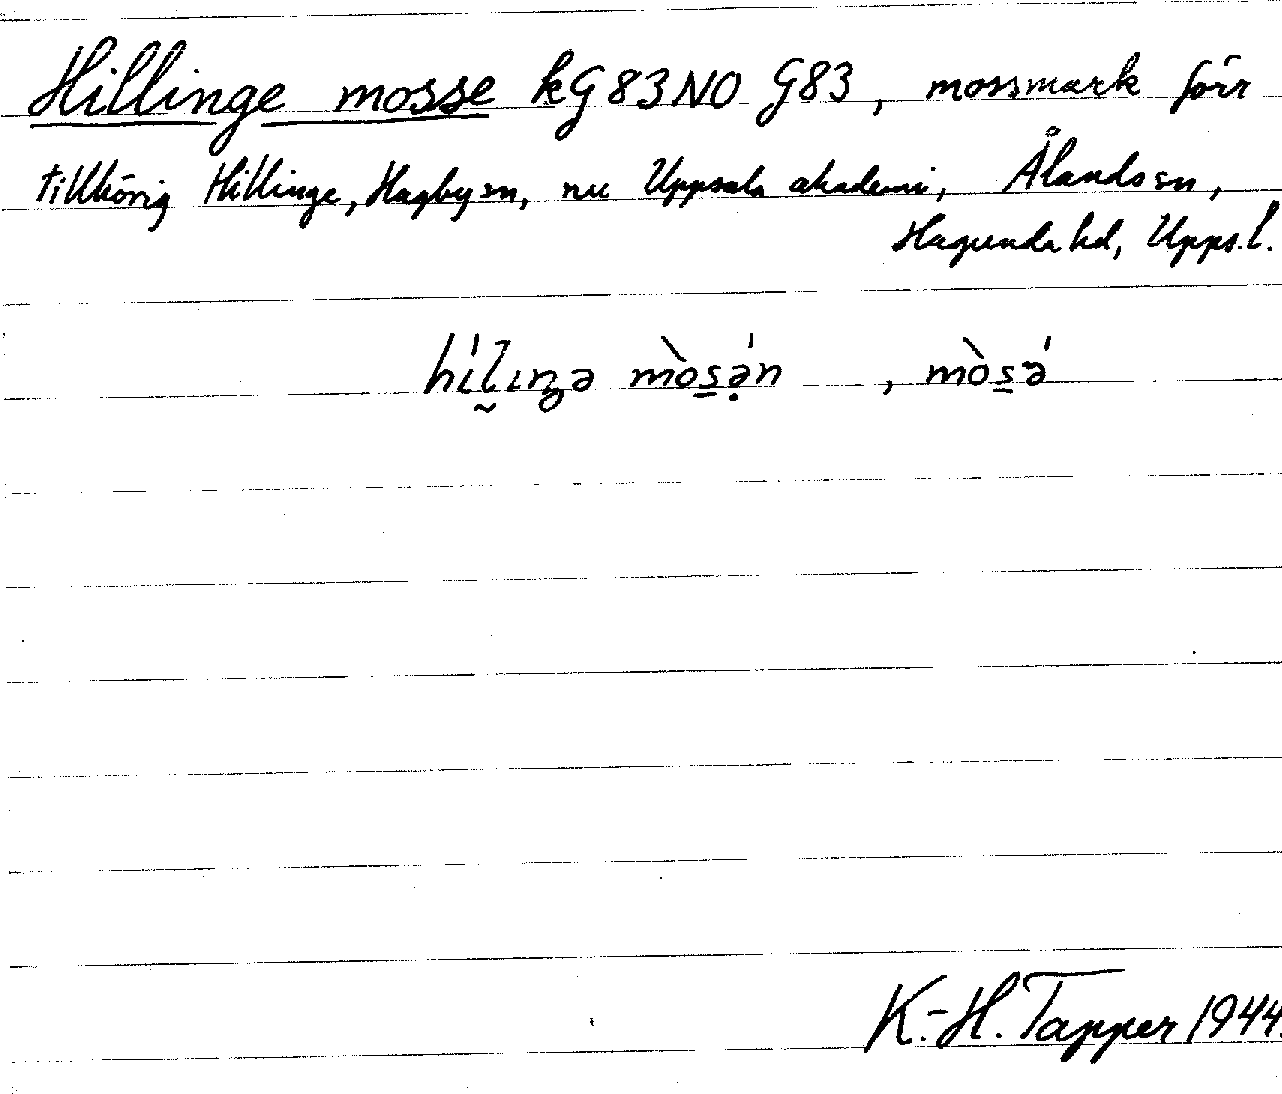 Hillinge mosse kG83NO G83, mossmark förr
tillhörig Hillinge, Hagby sn, nu Uppsala akademi, Ålands sn,
Hagunda hd, Upps. l.
hílıŋə mòsə́n, mòsə́
K.-H. Tapper 1944.